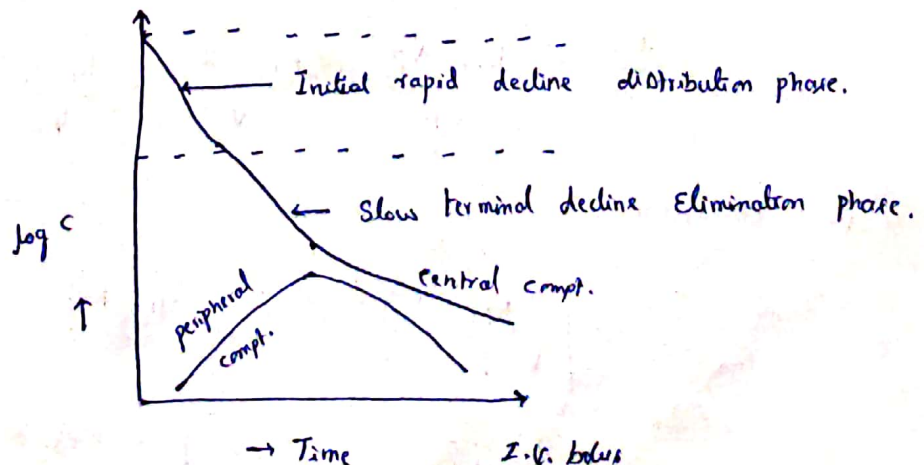 Initial rapid decline distribution phase.
Slow terminal decline Elimination phase.
log c
central compt.
peripheral
compt.
→ Time
I.V. bolus